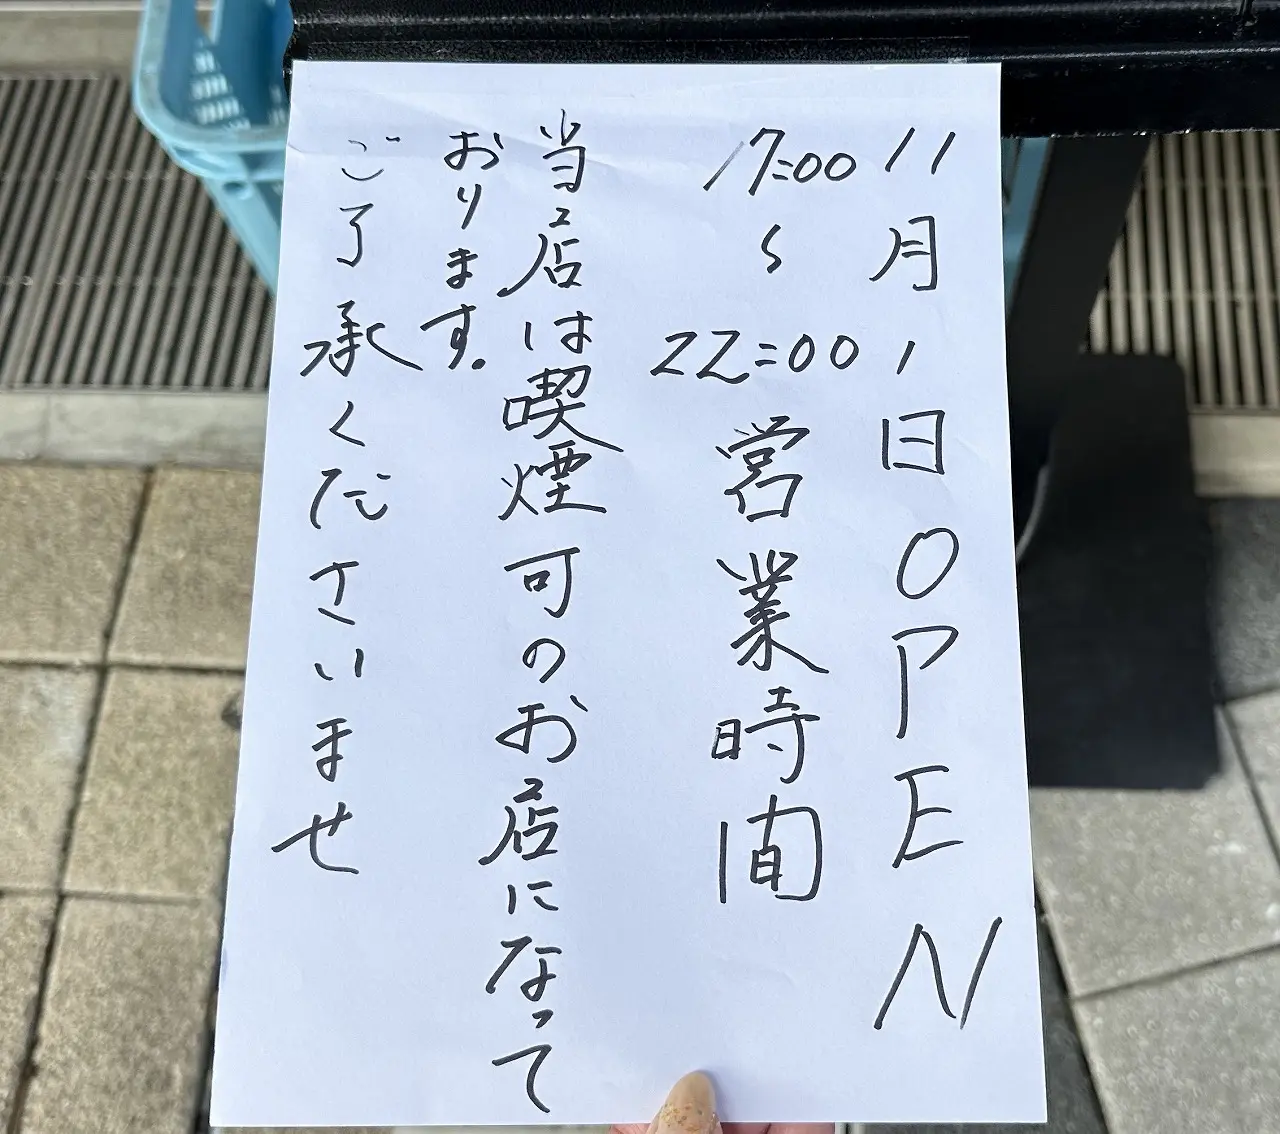 11月1日OPEN
17:00〜22:00営業時間
当店は喫煙可のお店になって
おります。
ご了承くださいませ